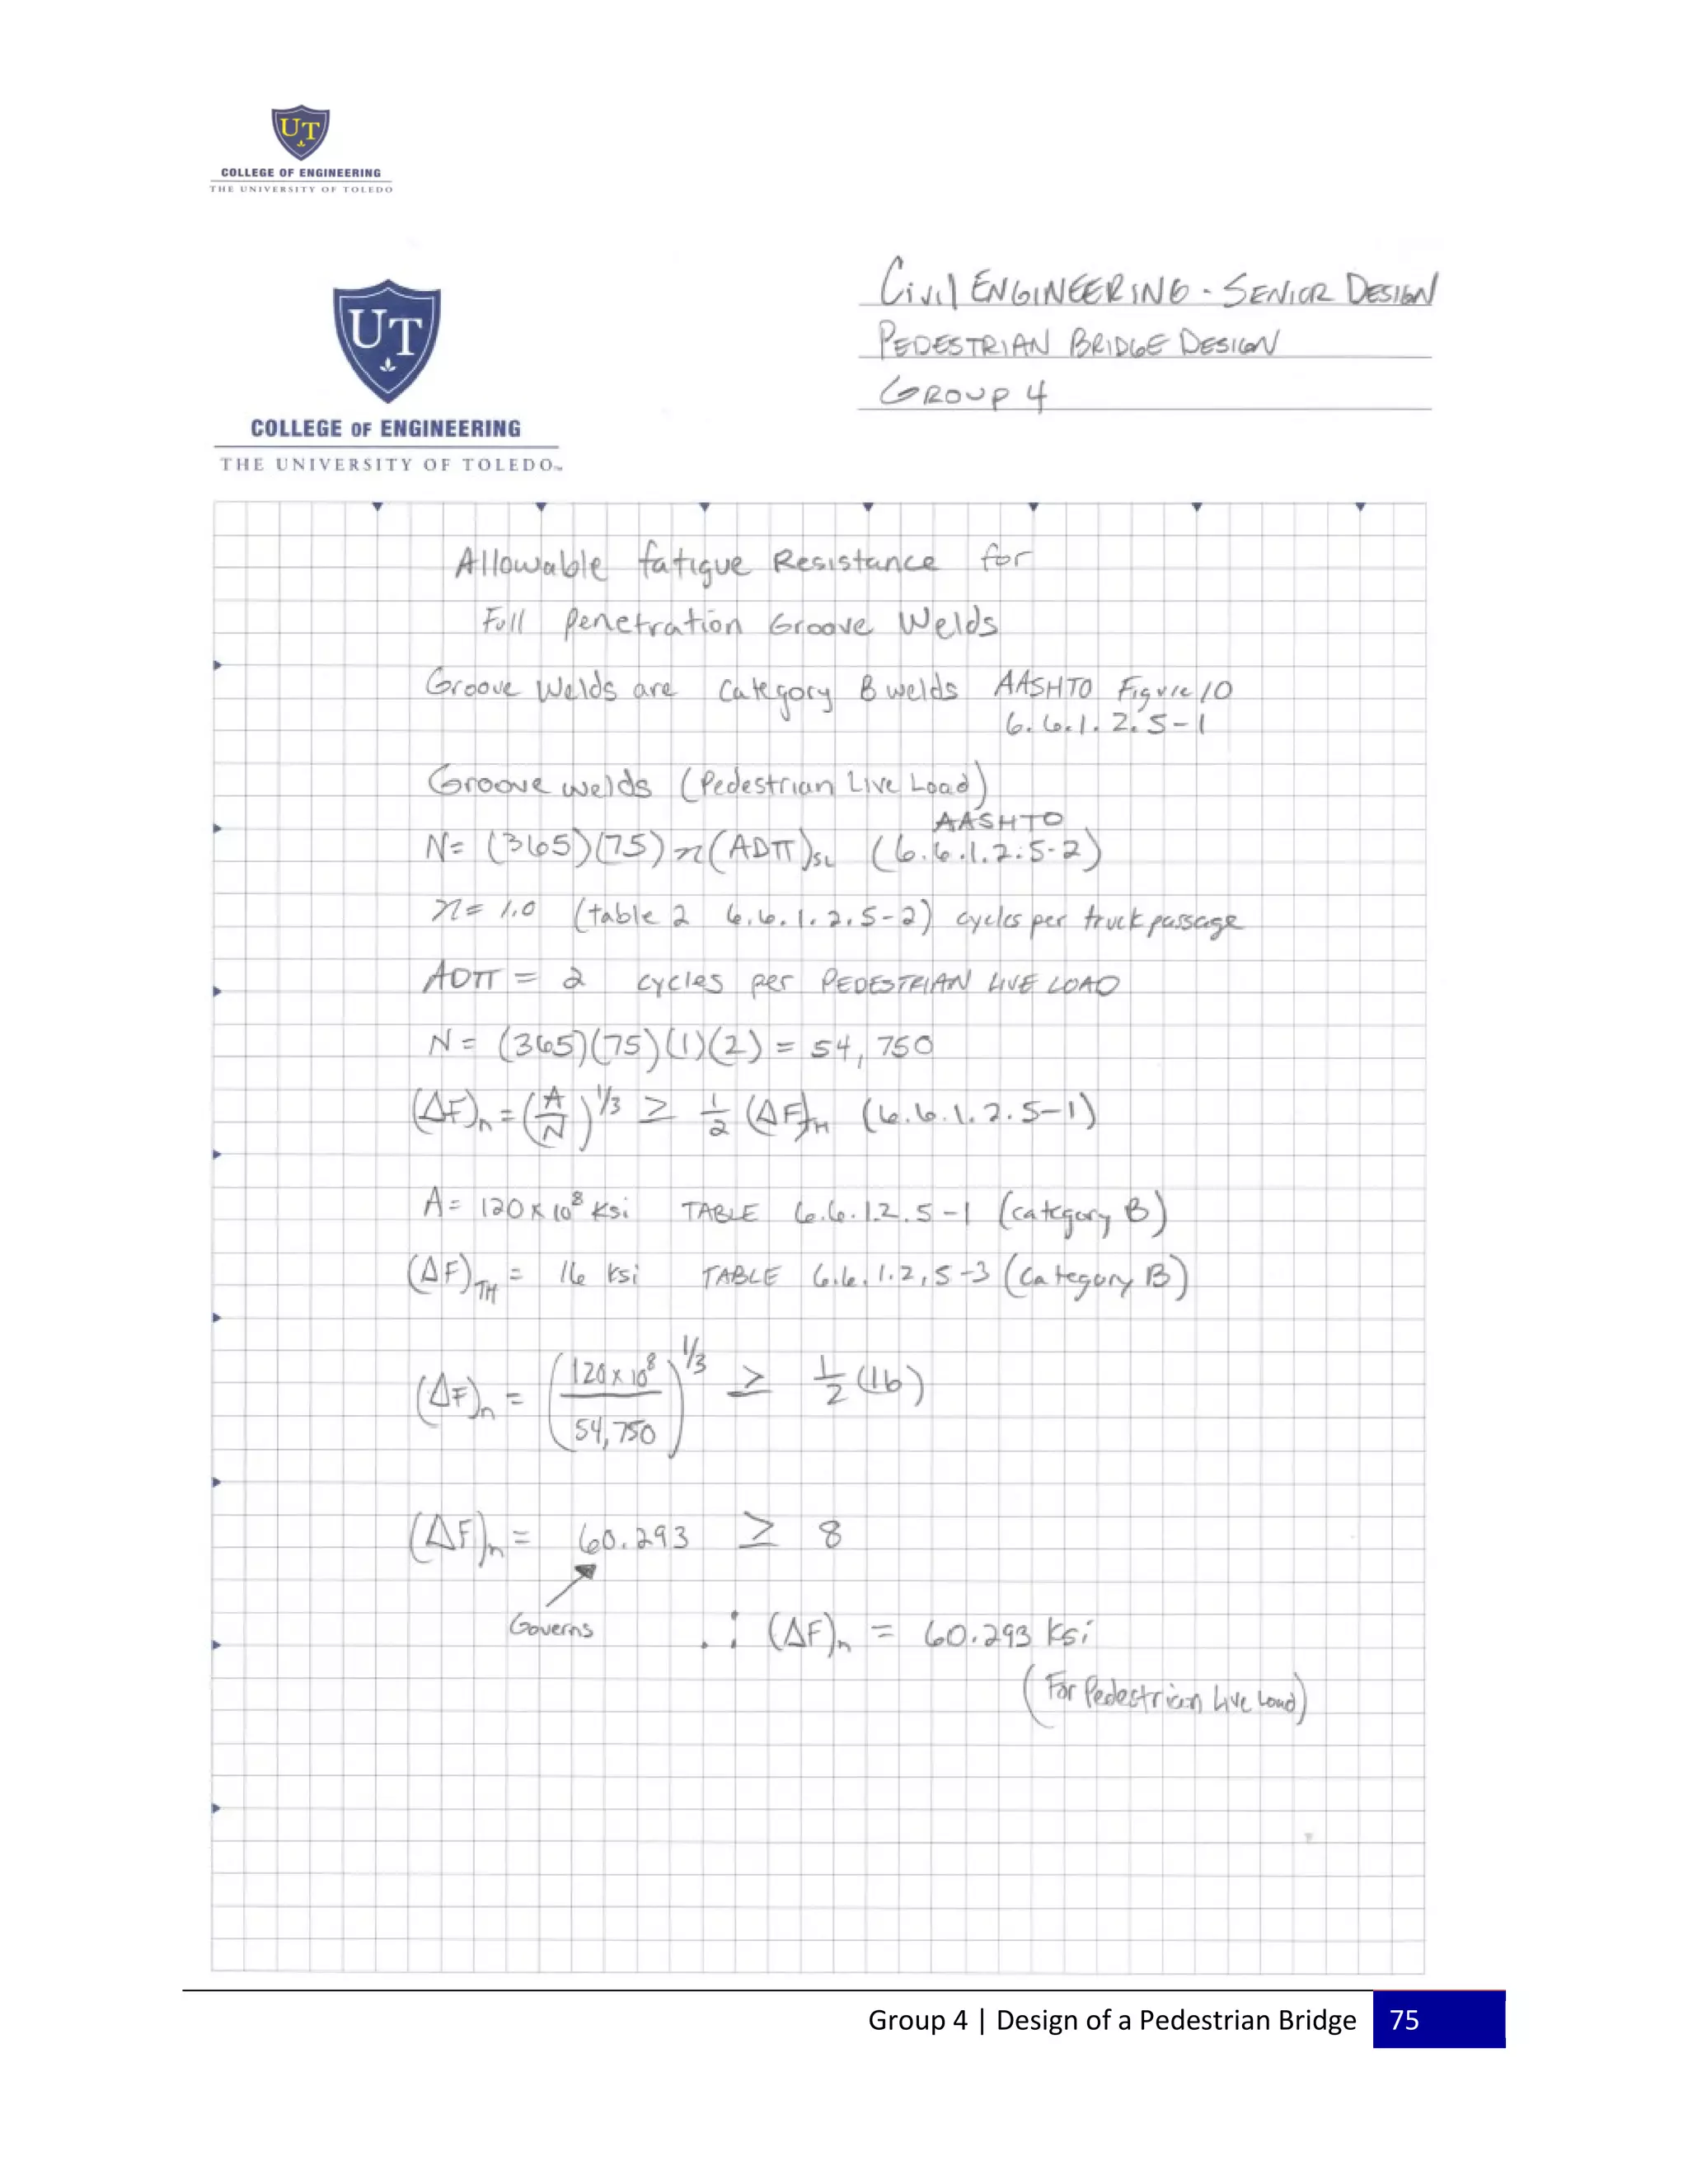 UT
COLLEGE OF ENGINEERING
THE UNIVERSITY OF TOLEDO
Civil ENGINEERING - SENIOR DESIGN
PEDESTRIAN BRIDGE DESIGN
GROUP 4
UT
COLLEGE OF ENGINEERING
THE UNIVERSITY OF TOLEDO™
Allowable fatigue Resistance for
Full Penetration Groove Welds
Groove Welds are Category B welds AASHTO Figure 10
6.6.1.2.5-1
Groove welds (Pedestrian Live Load)
AASHTO
N= (365)(75) n (ADTT)SL (6.6.1.2.5-2)
n= 1.0 (table 2 6.6.1.2.5-2) cycles per truck passage
ADTT = 2 cycles per PEDESTRIAN LIVE LOAD
N = (365)(75)(1)(2) = 54,750
(ΔF)n = (A/N)^1/3 ≥ 1/2 (ΔF)TH (6.6.1.2.5-1)
A = 120 x 10^8 Ksi TABLE 6.6.1.2.5-1 (category B)
(ΔF)TH = 16 Ksi TABLE 6.6.1.2.5-3 (Category B)
(ΔF)n = (120 x 10^8 / 54,750)^1/3 ≥ 1/2 (16)
(ΔF)n = 60.293 ≥ 8
Governs ∴ (ΔF)n = 60.293 Ksi
(For Pedestrian Live Load)
Group 4 | Design of a Pedestrian Bridge 75